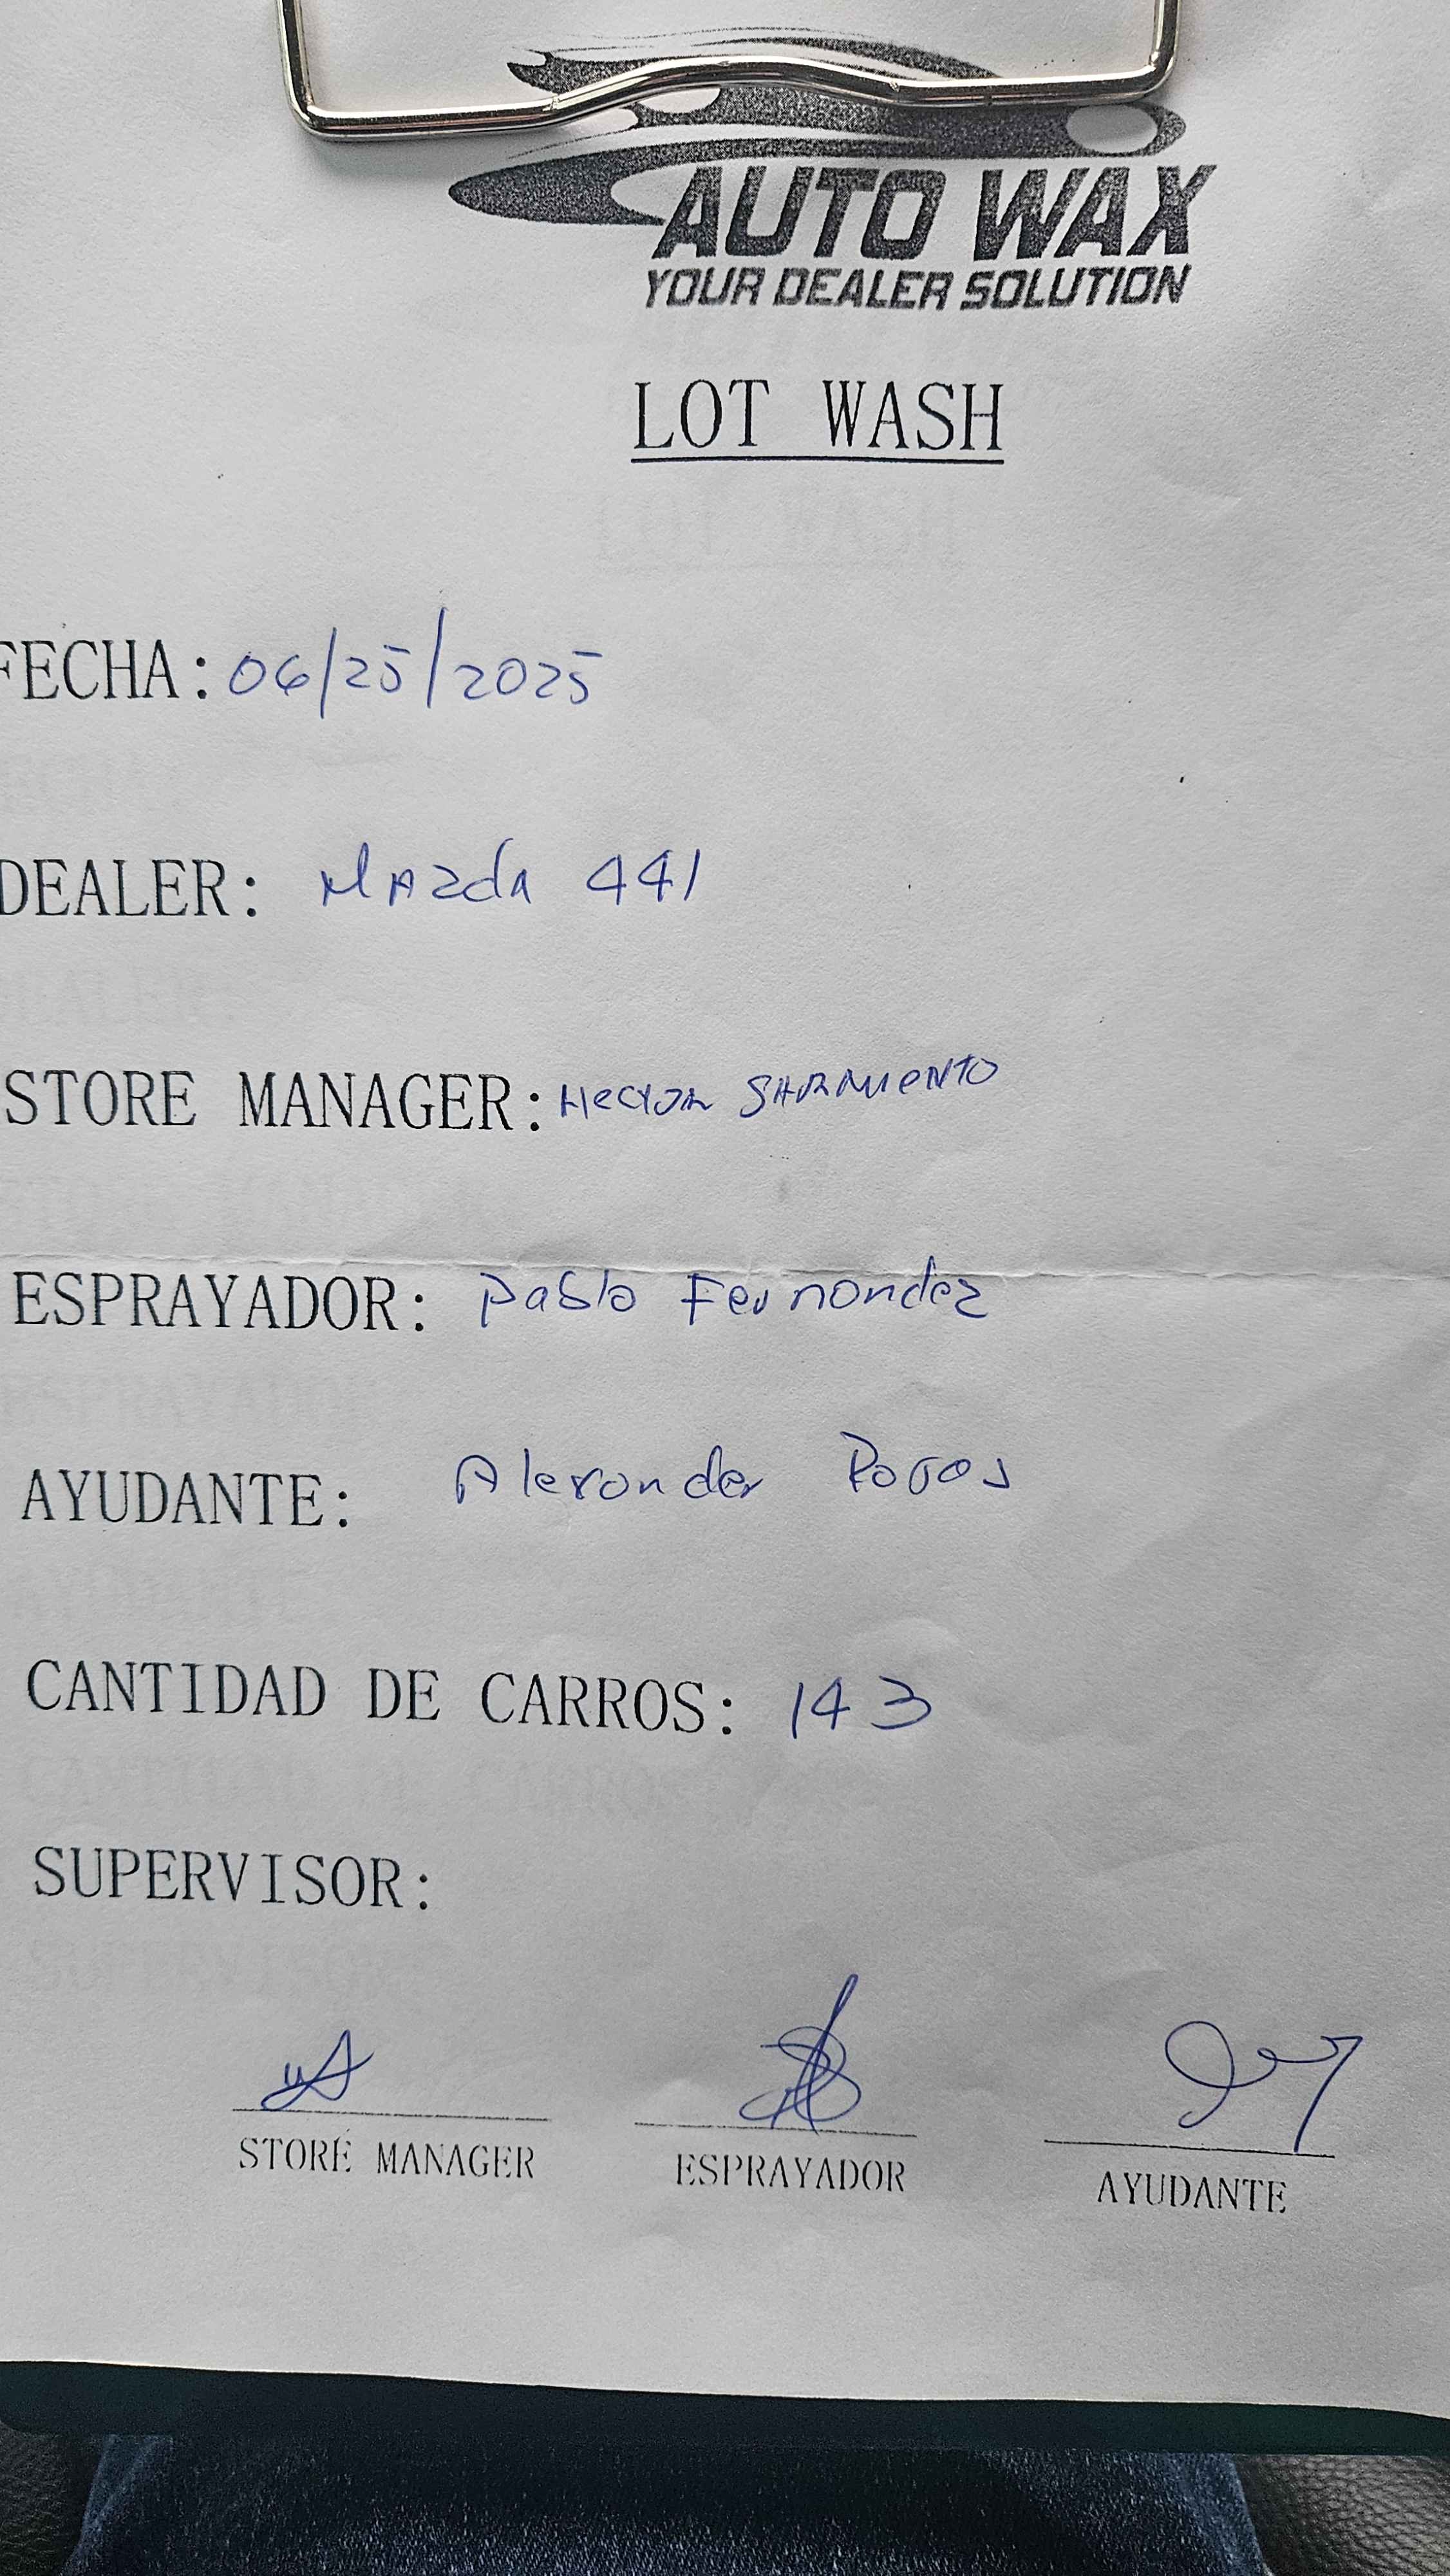 AUTO WAX
YOUR DEALER SOLUTION
LOT WASH
FECHA: 06/25/2025
DEALER: Mazda 441
STORE MANAGER: Hector SARMIENTO
ESPRAYADOR: Pablo Fernandez
AYUDANTE: Alexander
CANTIDAD DE CARROS: 143
SUPERVISOR:
STORE MANAGER ESPRAYADOR AYUDANTE